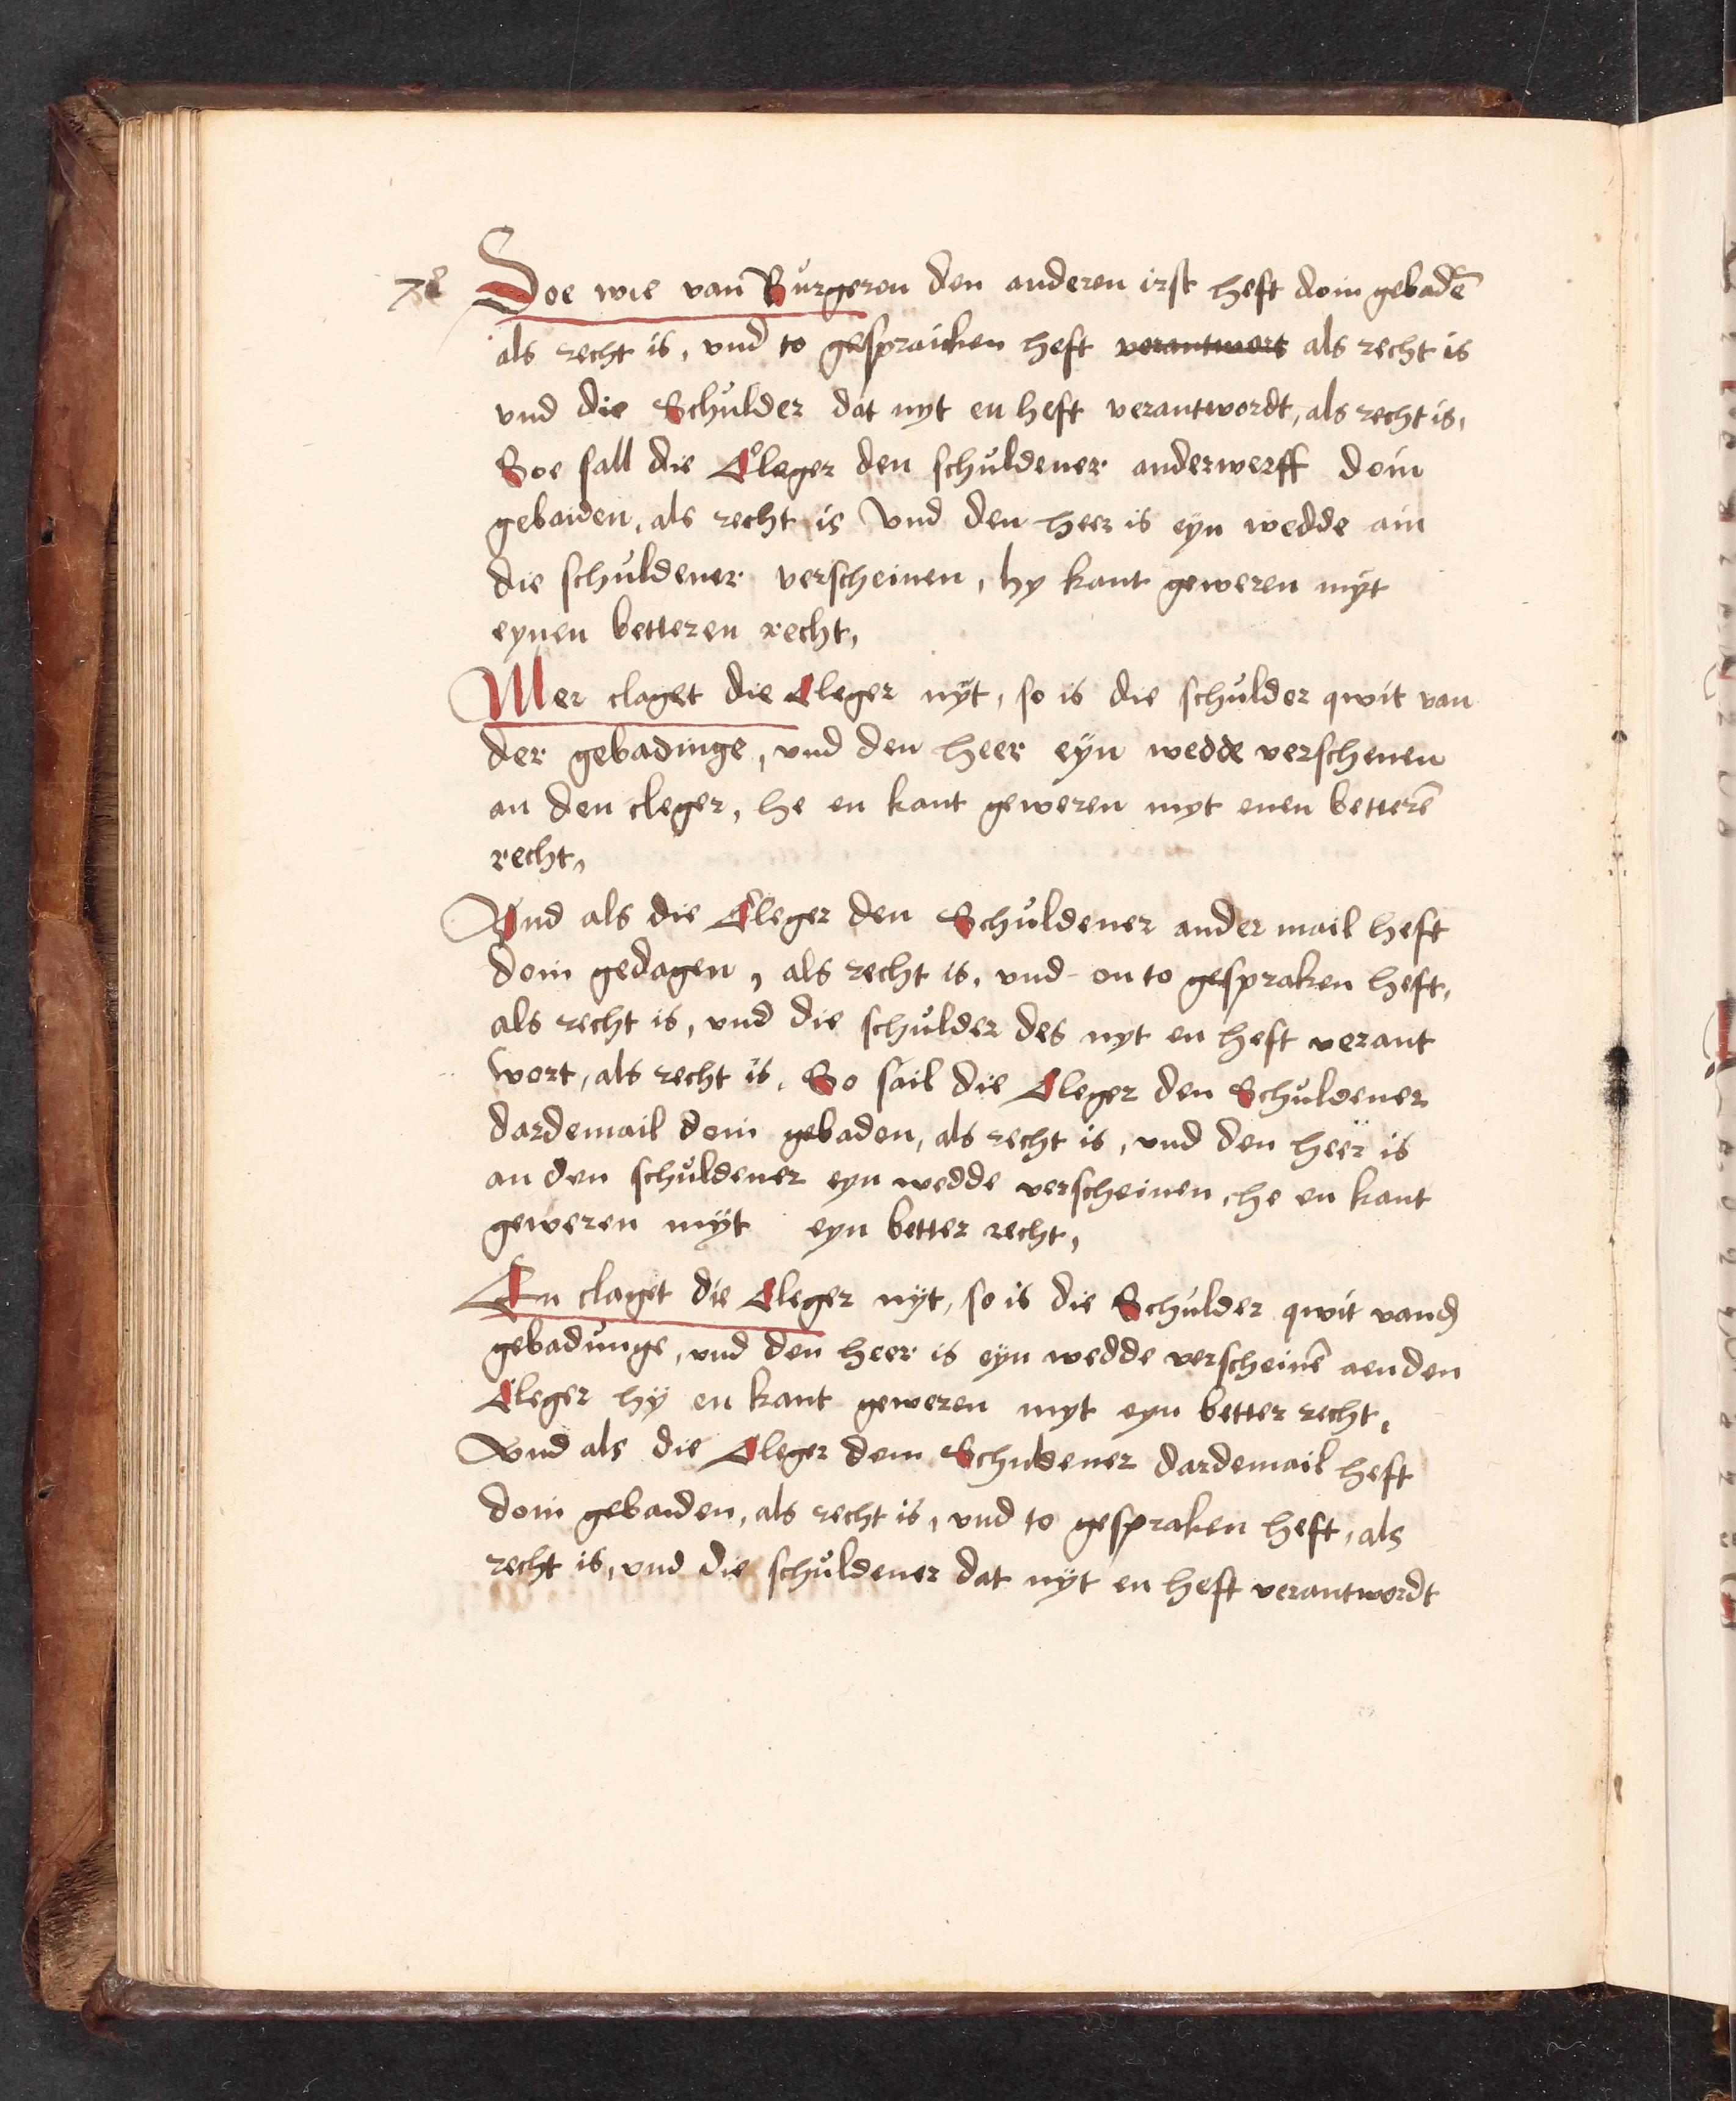 Soe wie van Burgeren den anderen irst heft doin gebadē
als recht is, vnd to gespraicken heft verantwort als recht is
vnd die Schulder dat nyt en heft verantwordt, als recht is,
Soe sall die Cleger den schuldener anderwerff doin
gebaiden, als recht is Vnd den heer is eyn wedde ain
die schuldener verscheinen, hy kant geweren myt
eynen betteren recht,
Mer claget die Cleger nyt, so is die schulder qwit van
der gebadinge, vnd den heer eyn wedde verschenen
an den cleger, he en kant geweren myt enen betterē
recht,
Vnd als die Cleger den Schuldener ander mail heft
doin gedagen, als recht is, vnd on to gespraken heft,
als recht is, vnd die schulder des nyt en heft verant
wort, als recht is. So sail die Cleger den Schuldener
dardemail doin gebaden, als recht is, vnd den heer is
an den schuldener eyn wedde verscheinen, he en kant
geweren myt eyn better recht,
En claget die Cleger nyt, so is die Schulder qwit vand
gebadunge, vnd den heer is eyn wedde verscheinē aen den
Cleger hy en kant geweren myt eyn better recht,
Vnd als die Cleger dem Schuldener dardemail heft
doin gebaiden, als recht is, vnd to gespraken heft, als
recht is, vnd die schuldener dat nyt en heft verantwordt